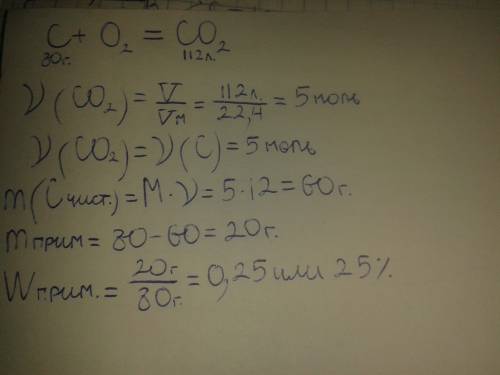 C + O₂ = CO₂
80г. 112л.
ν (CO₂) = V/Vм = 112л./22,4 = 5 моль
ν (CO₂) = ν (C) = 5 моль
m (C чист.) = M · ν = 5 · 12 = 60 г.
m прим = 80 - 60 = 20 г.
W прим. = 20г/80г. = 0,25 или 25%.